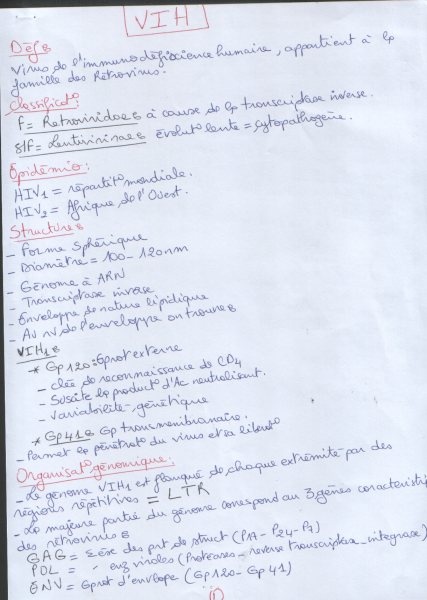 VIH
Défs
Virus de l'immunodéficience humaine, appartient à la
famille des Rétrovirus.
Classificat°:
f= Retroviridaes à cause de la transcriptase inverse.
s/f= Lentivirinaes évolut° lente = cytopathogène.
Epidémio:
HIV1 = répartit° mondiale.
HIV2 = Afrique de l'Ouest.
Structures
- Forme sphérique
- Diamètre = 100-120nm
- Génome à ARN
- Transcriptase inverse
- Enveloppe de nature lipidique
- Au nv de l'enveloppe on trouves
VIH1s
* Gp120: Gprot externe
- clée de reconnaissance de CD4
- Suscite la product° d'Ac neutralisant.
- Variabilité génétique
* Gp41s Gp transmembranaire.
- Permet la pénétrat° du virus et sa libert°
Organisat° génomique:
- Le génome VIH1 est flanqué de chaque extrémité par des
régions répétitives = LTR
- La majeure partie du génome correspond au 3 gènes caractéristiq
des rétroviruss
GAG = Σèse des prt de struct (P17 - P24 - P7)
POL = " enz virales (Proteases - reverse transcriptase - integrase)
ENV = Gprot d'envelope (Gp120 - Gp41)
(1)